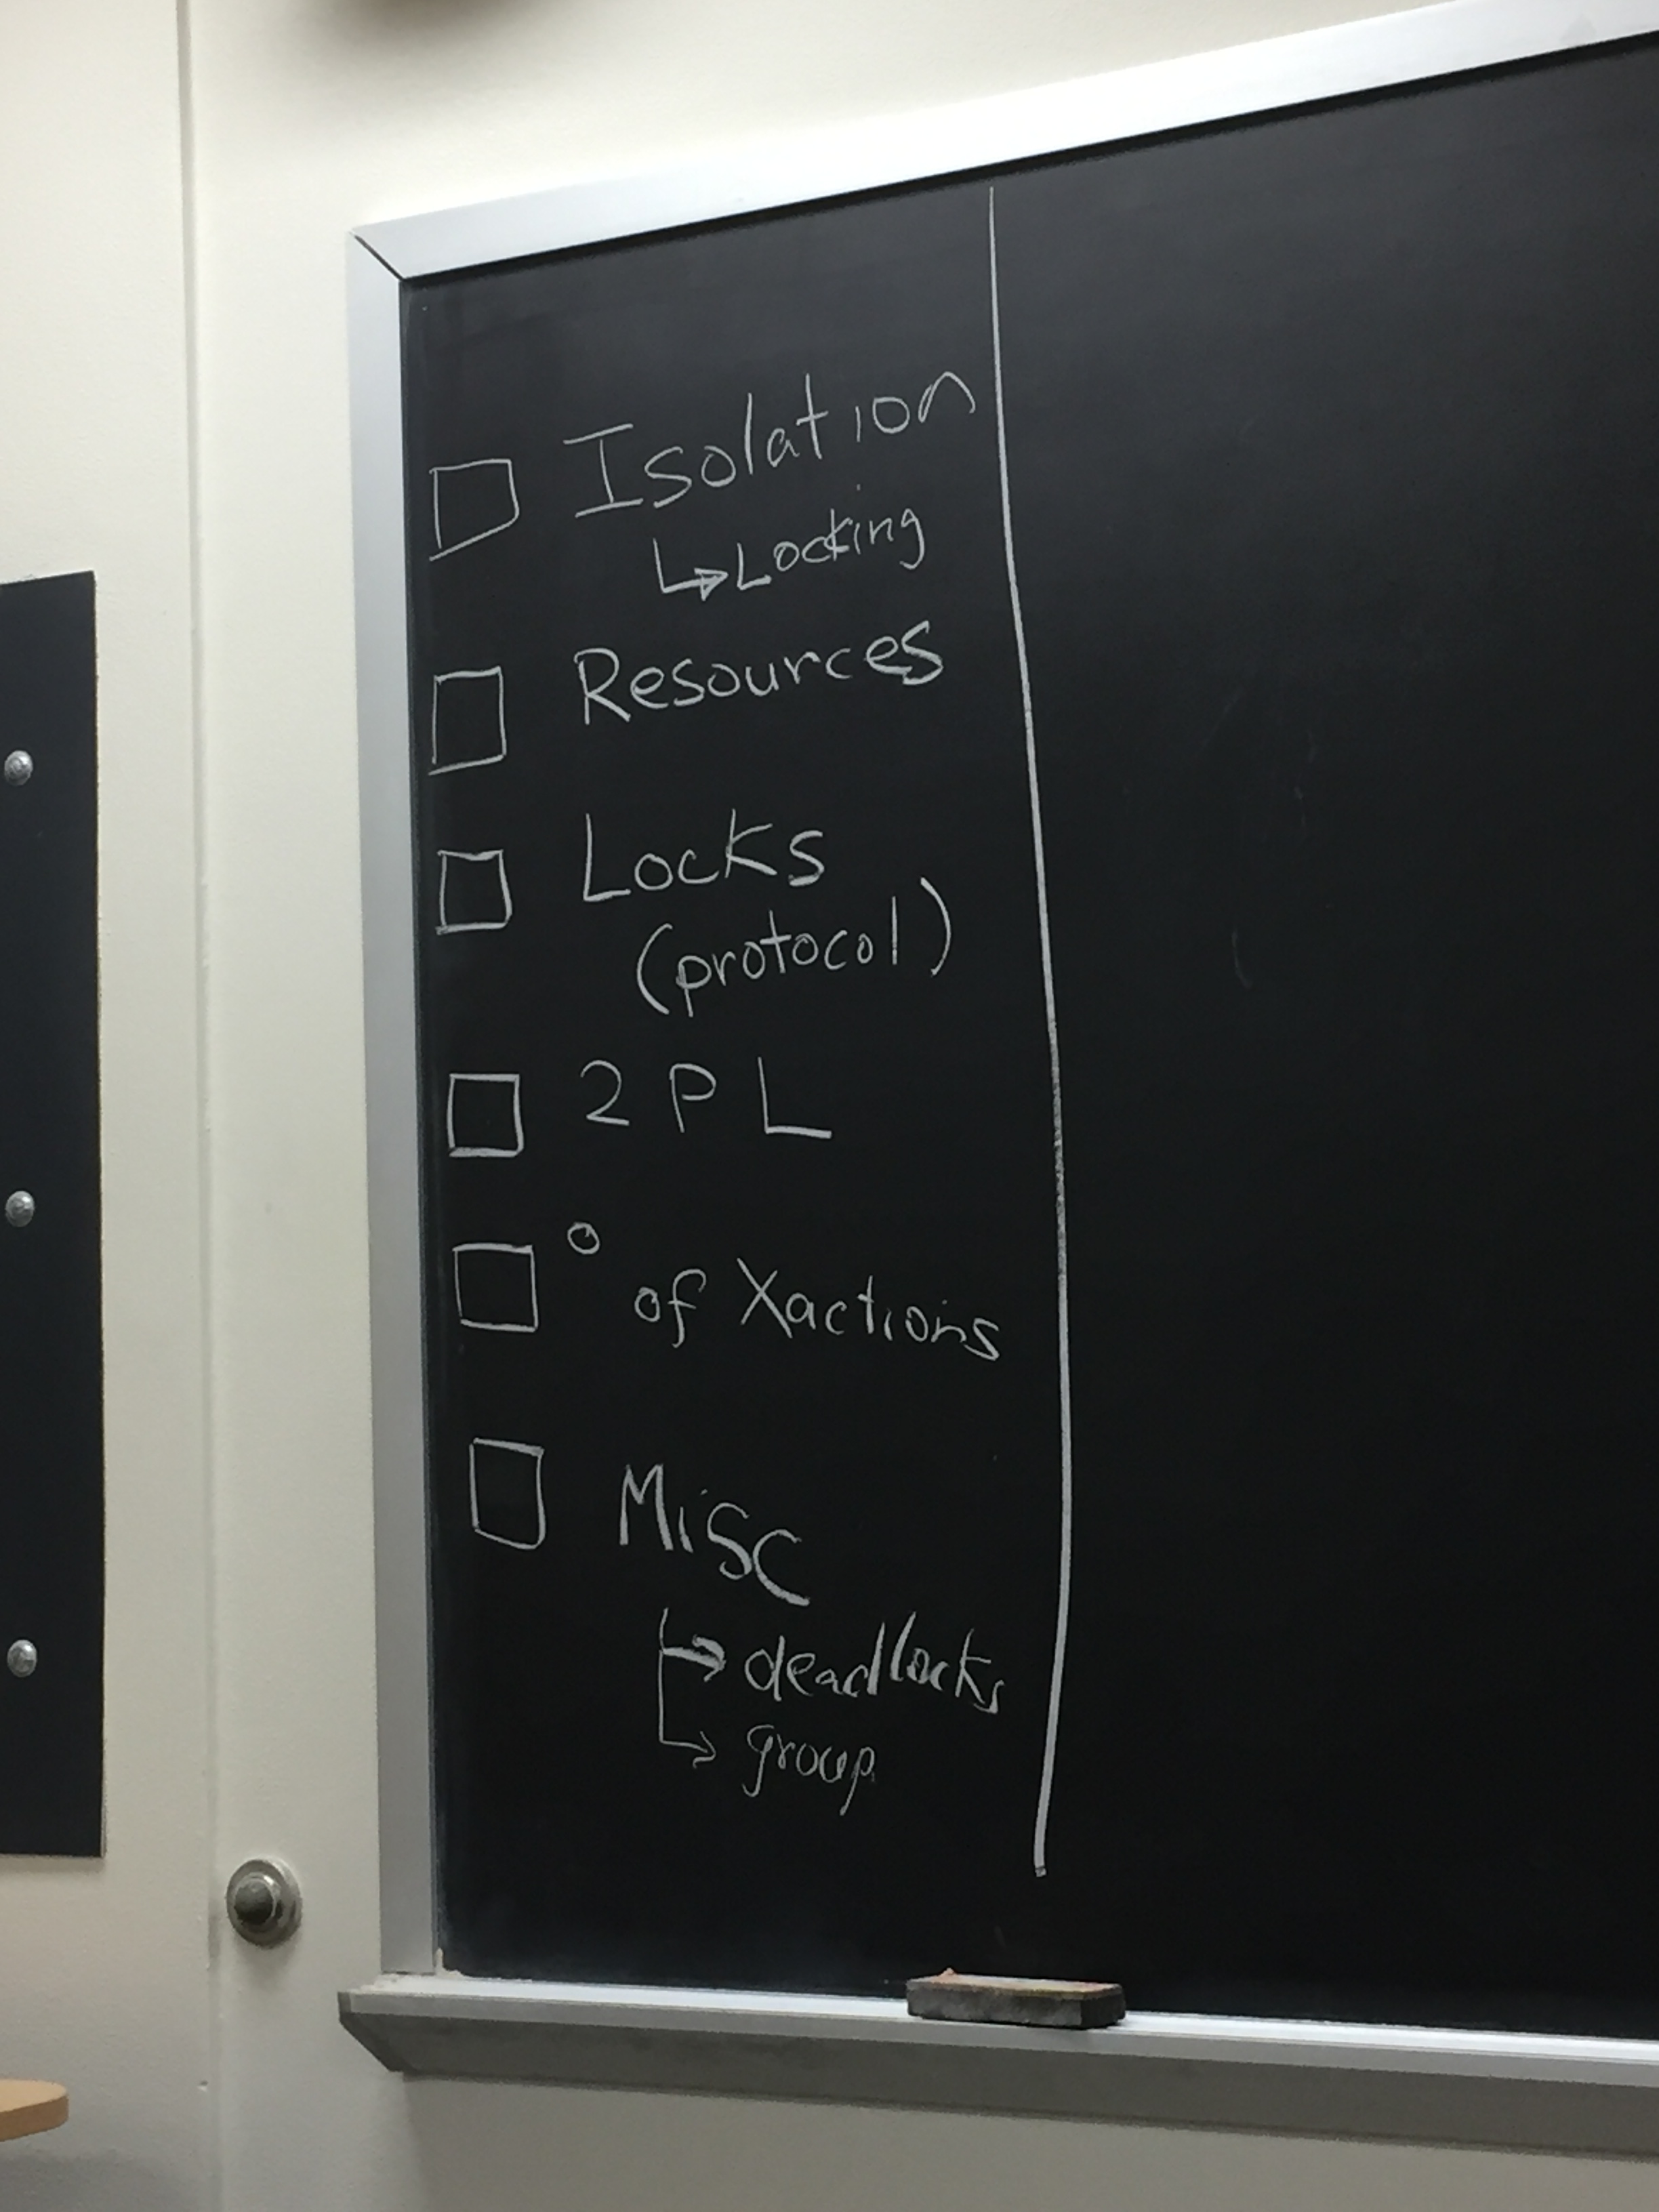 Isolation
Locking
Resources
Locks
(protocol)
2PL
° of Xactions
Misc
deadlocks
group